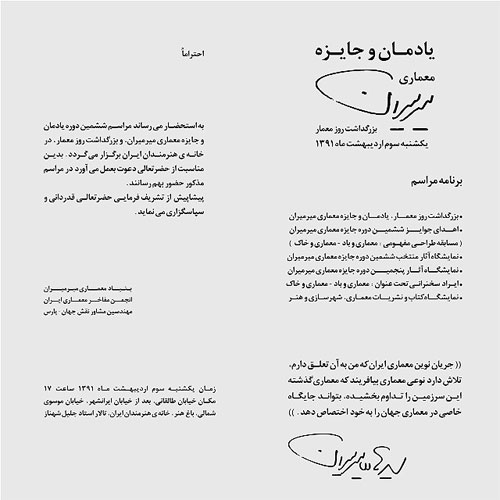 یادمـان و جـایـزه
معماری
میرمیران
بزرگداشت روز معمار
یکشنبه سوم اردیبهشت ماه ۱۳۹۱
برنامه مراسم
•بزرگداشت روز معمار، یادمـان و جایزه معماری میرمیران
•اهدای جوایـز ششمین دوره جایزه معماری میرمیران
( مسابقه طراحی مفهومی : معماری و باد - معماری و خاک )
•نمایشگاه آثار منتخب ششمین دوره جایزه معماری میرمیران
•نمایشگاه آثار پنجمیـن دوره جایزه معماری میرمیران
•ایـراد سخنرانی تحت عنوان : معماری و باد - معماری و خاک
•نمایشگاه کتاب و نشریات معماری، شهرسازی و هنر
(( جریان نوین معماری ایران که من به آن تعلـق دارم،
تلاش دارد نوعی معماری بیافریند که معماری گذشته
این سرزمین را تداوم بخشیده، بتواند جایگاه
خاصی در معماری جهان را به خود اختصاص دهد . ))
احتراماً
به استحضار می رساند مراسم ششمین دوره یادمان
و جایزه معماری میرمیران، و بزرگداشت روز معمار، در
خانه ی هنرمندان ایران برگزار می گردد . بدین
مناسبت از حضرتعالی دعوت بعمل می آورد در مراسم
مذکور حضور بهم رسانند.
پیشاپیش از تشریف فرمایی حضرتعالی قدردانی و
سپاسگزاری می نماید .
بنیـاد معمـاری میـرمیـران
انجمن مفاخر معماری ایران
مهندسین مشاور نقش جهان - پارس
زمان یکشنبه سوم اردیبهشت ماه ۱۳۹۱ ساعت ۱۷
مکان خیابان طالقانی، بعد از خیابان ایرانشهر، خیابان موسوی
شمالی، باغ هنر، خانه ی هنرمندان ایران، تالار استاد جلیل شهناز